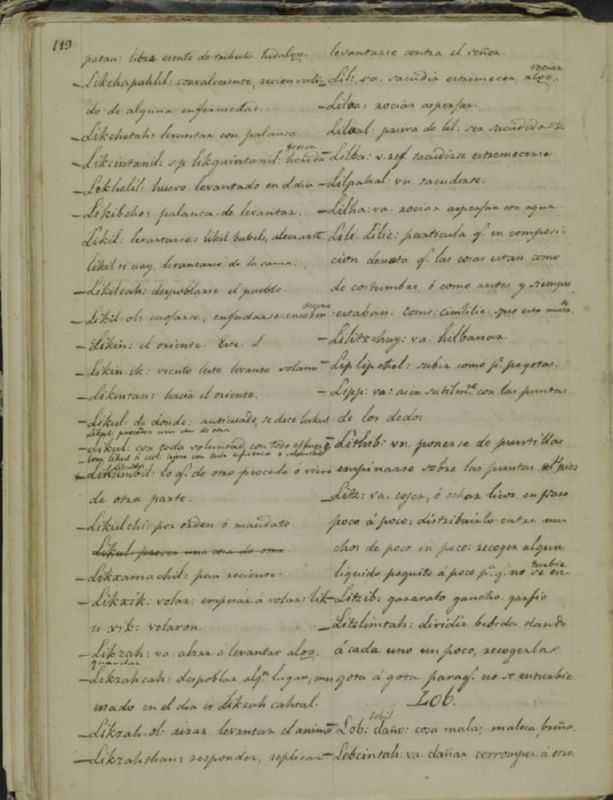 119
pasan: libre esento de tributo hidalgo.
—Likchapahlil: convaleciente, recien
do de alguna enfermedad.
—Likchetah: levantar con palanca
—Likcintanil: s.p. likquintanil:
—Lekhelil: huevo levantado en el dia
—Likibche: palanca de levantar.
Likil: levantarse: likil
likil ti uay, levantarse de la cama.
—Likilcah: despoblarse el pueblo.
—Likil ol: enojarse, enfadarse
—Likin: el oriente. Eve. L
—Likin ik: viento leste, levante solano
—Likintan: hacia el oriente.
—Likul: de donde: anticuado, se dice
—Likul: con toda voluntad, con todo esfuerzo
—Likumbil: lo q.e de otro procede ó viene
de otra parte.
—Likulchi: por orden ó mandato
Likul: proceder una cosa de otra.
—Likxamachil: pan reciente.
—Likxik: volar: empezar á volar: lik
ti xik: volaron.
—Likzah: va. alzar ó levantar algo.
guardar
—Likzahcah: despoblar alg.n lugar, mas
usado en el dia es Likzah cahtal.
—Likzah ol: airar levantar el animo
—Likzahthan: responder, replicar
levantarse contra el señor.
—Lil: va. sacudir estremecer, algo rociar
—Lilba: rociar asperjar.
—Lilbal: pasiva de lil: ser sacudido &
—Lilba: v. ref. sacudirse estremecerse
—Lilpahal: vn. sacudirse.
—Lilha: va. rociar asperjar con agua.
—Lili. Lilic: particula q.e en composi-
cion denota q.e las cosas estan como
de costumbre, ó como antes y siempre
estaban: como: cimlilic,
—Lilitzchuy: va. hilbanar.
—Liplipchel: subir como p.r poyotas.
—Lipp: va: asir sutilm.te con las puntas
de los dedos
—Lithlob: vn. ponerse de puntillas
empinarse sobre las puntas de los pies
—Litz: va. cojer, ó echar licor en vaso
poco á poco: distribuirlo entre mu-
chos de poco en poco: recoger algun
liquido poquito á poco p.a q.e no se en-
turbie
—Litzib: garavato gancho garfio
—Litzlimtah: dividir bebida dando
á cada uno un poco, recogerla
gota á gota para q.e no se enturbie
Lob.
—Lob: lobil daño: cosa mala: maleza, breña.
—Lobcintah: va. dañar corromper á otro